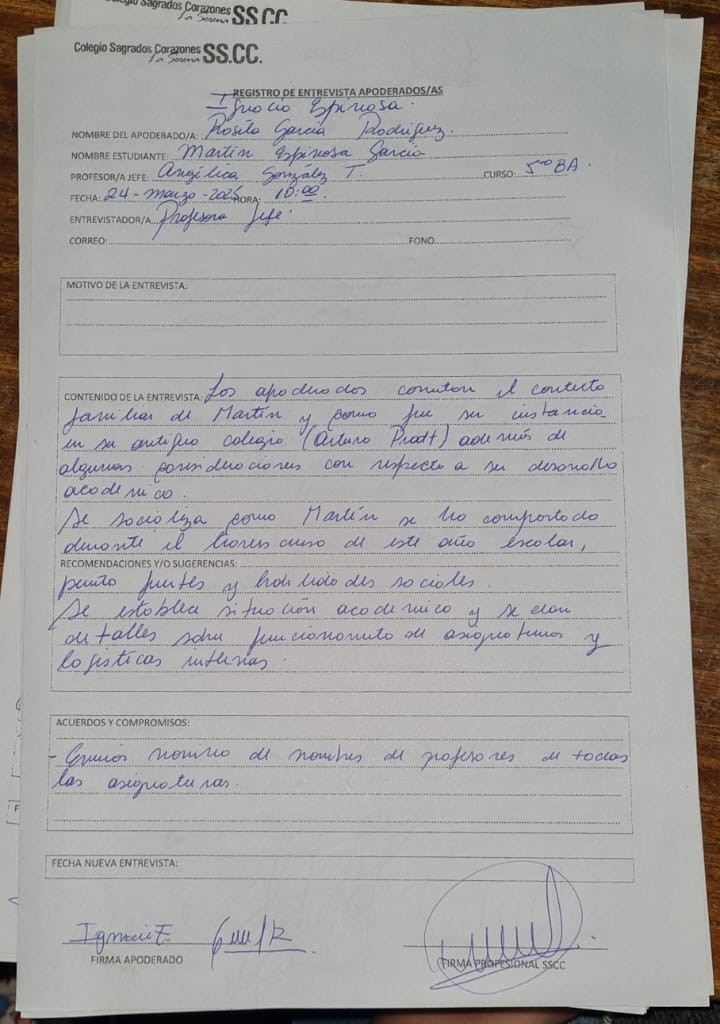 Colegio Sagrados Corazones SS.CC.
La Serena
Colegio Sagrados Corazones SS.CC.
La Serena
REGISTRO DE ENTREVISTA APODERADOS/AS
Ignacio Espinosa.
NOMBRE DEL APODERADO/A: Rosita García Rodríguez.
NOMBRE ESTUDIANTE: Martín Espinosa García
PROFESOR/A JEFE: Angélica González T. CURSO: 5to BA.
FECHA: 24-marzo-2025 HORA: 10:00.
ENTREVISTADOR/A Profesora Jefe.
CORREO: FONO
MOTIVO DE LA ENTREVISTA:
CONTENIDO DE LA ENTREVISTA: Los apoderados comentan el contexto
familiar de Martín y como fue su instancia
en su antiguo colegio (Arturo Pratt) además de
algunas consideraciones con respecto a su desarrollo
académico.
Se socializa como Martín se ha comportado
durante el transcurso de este año escolar,
RECOMENDACIONES Y/O SUGERENCIAS:
punto fuertes y habilidades sociales.
Se establece situación académico y se dan
detalles sobre funcionamiento de asignaturas y
logísticas internas.
ACUERDOS Y COMPROMISOS:
- nomina de nombres de profesores de todas
las asignaturas.
FECHA NUEVA ENTREVISTA:
Ignacio E.
FIRMA APODERADO
FIRMA PROFESIONAL SSCC